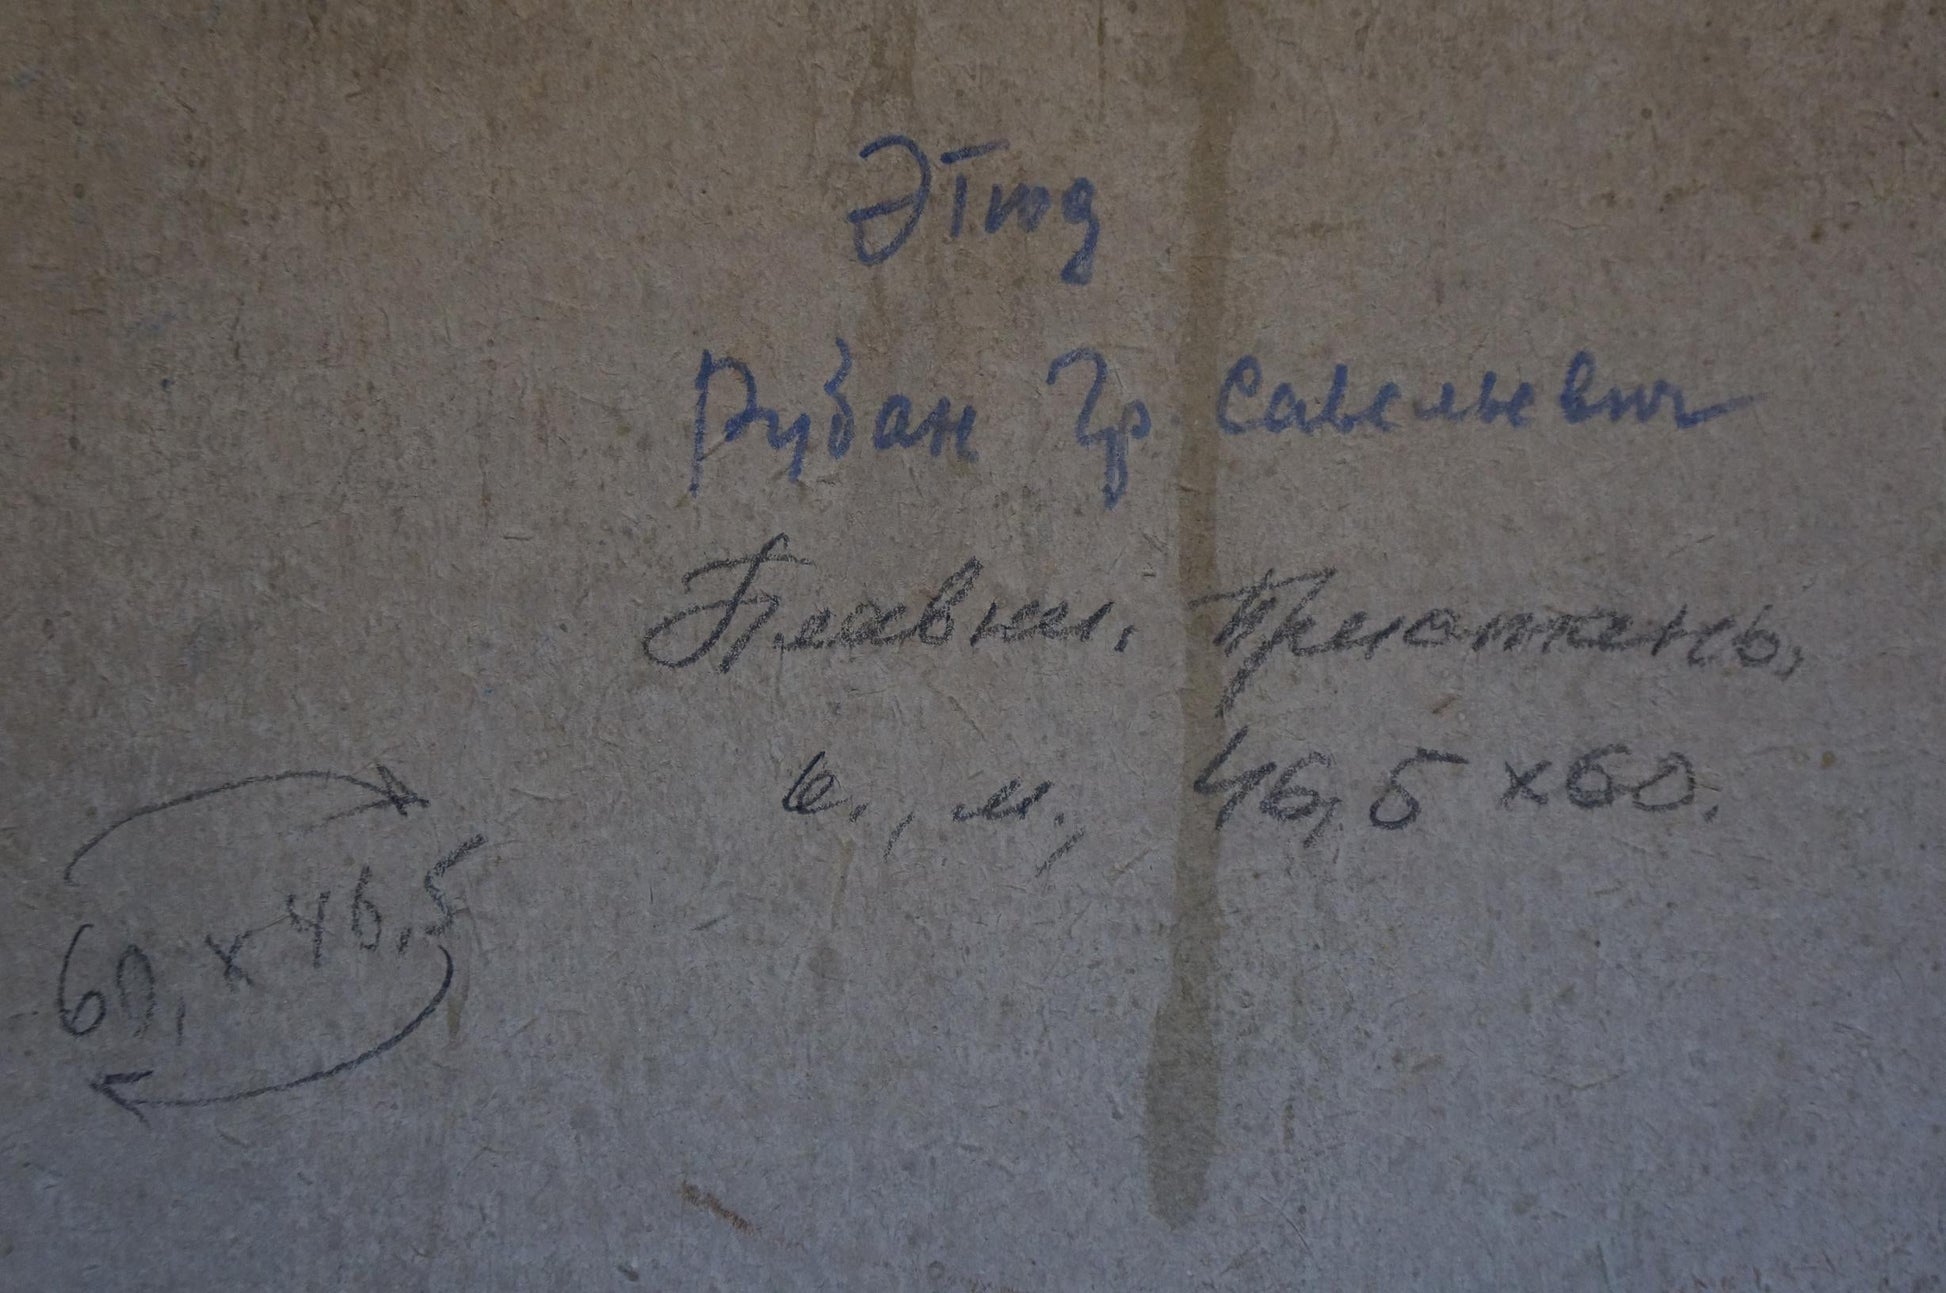 Этюд
Рубан Гр. Савельевич
Плавни.
к., м., 46,5 x 60.
60, x 46,5